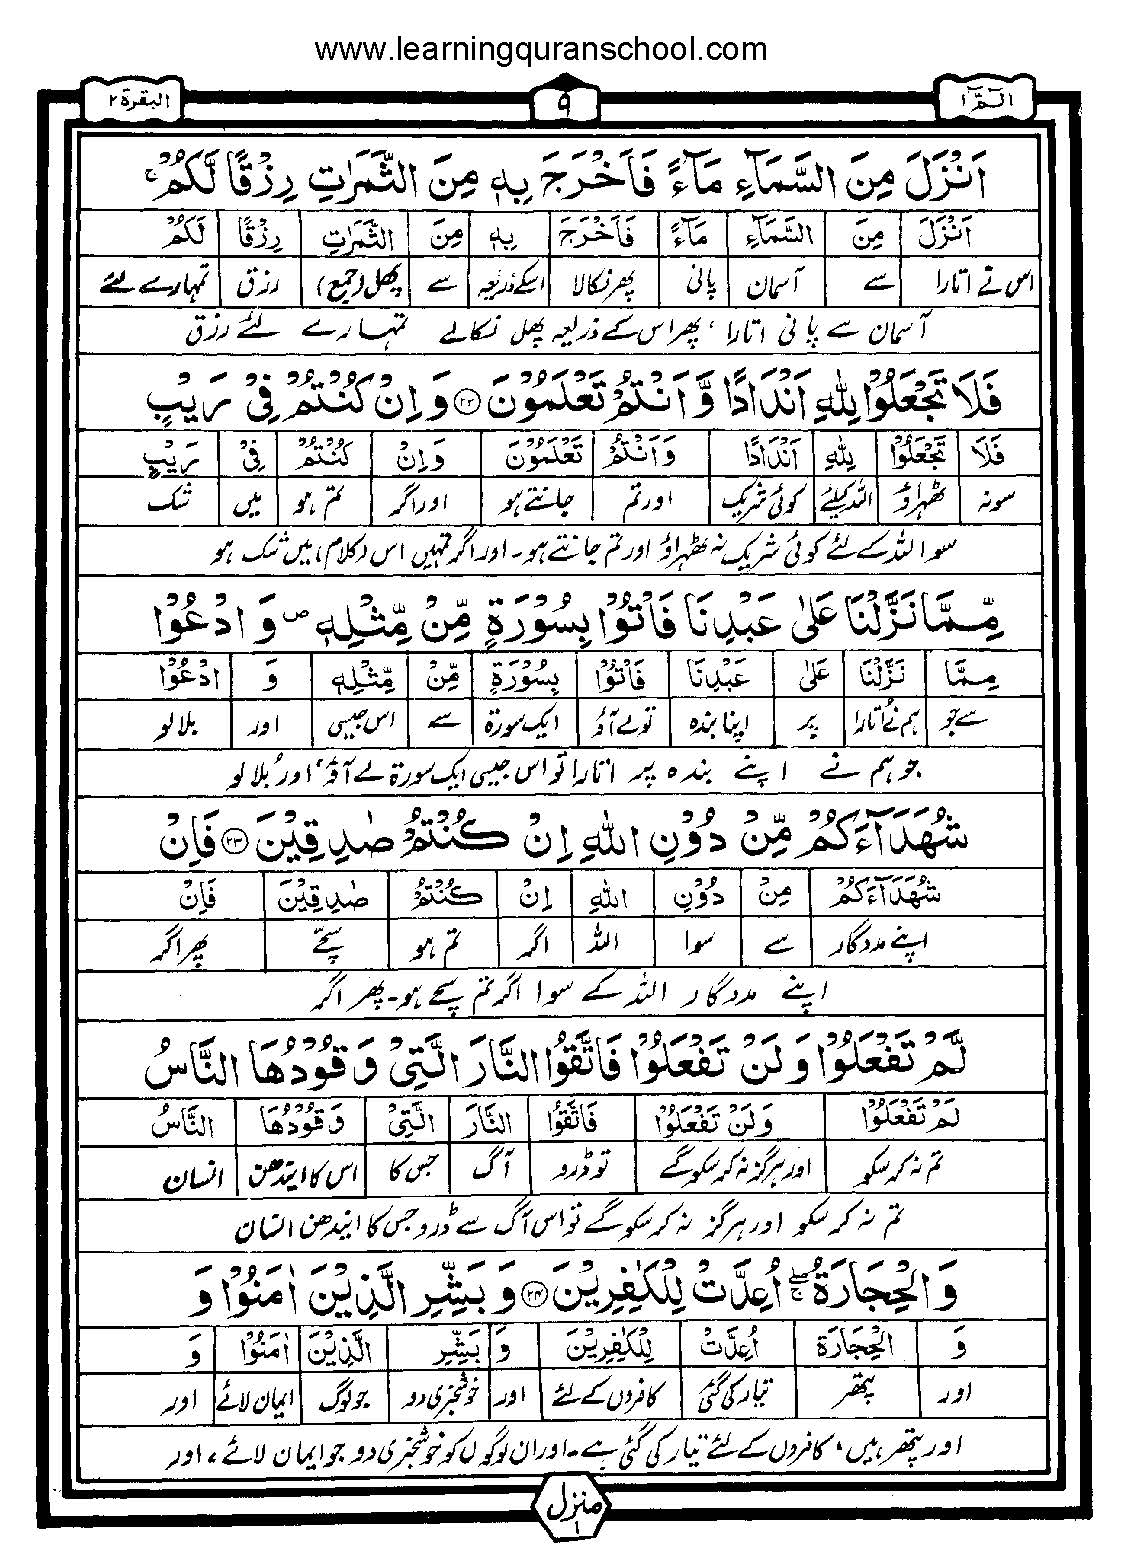 www.learningquranschool.com
الٓمّٓ ۱ ۹ البقرة ۲
اَنْزَلَ مِنَ السَّمَآءِ مَآءً فَاَخْرَجَ بِهٖ مِنَ الثَّمَرٰتِ رِزْقًا لَّكُمْ ۚ
اَنْزَلَ مِنَ السَّمَآءِ مَآءً فَاَخْرَجَ بِهٖ مِنَ الثَّمَرٰتِ رِزْقًا لَكُمْ
اس نے اتارا سے آسمان پانی پھر نکالا اسکے ذریعہ سے پھل (جمع) رزق تمہارے لئے
آسمان سے پانی اتارا ، پھر اس کے ذریعہ پھل نکالے تمہارے لئے رزق
فَلَا تَجْعَلُوْا لِلّٰهِ اَنْدَادًا وَّ اَنْتُمْ تَعْلَمُوْنَ ﴿۲۲﴾ وَ اِنْ كُنْتُمْ فِيْ رَيْبٍ
فَلَا تَجْعَلُوْا لِلّٰهِ اَنْدَادًا وَاَنْتُمْ تَعْلَمُوْنَ وَاِنْ كُنْتُمْ فِيْ رَيْبٍ
سو نہ ٹھہراؤ اللہ کیلئے کوئی شریک اور تم جانتے ہو اور اگر تم ہو میں شک
سو اللہ کے لئے کوئی شریک نہ ٹھہراؤ اور تم جانتے ہو۔ اور اگر تمہیں اس (کلام) میں شک ہو
مِّمَّا نَزَّلْنَا عَلٰى عَبْدِنَا فَاْتُوْا بِسُوْرَةٍ مِّنْ مِّثْلِهٖ ۪ وَ ادْعُوْا
مِمَّا نَزَّلْنَا عَلٰى عَبْدِنَا فَاْتُوْا بِسُوْرَةٍ مِّنْ مِّثْلِهٖ وَ ادْعُوْا
سے جو ہم نے اتارا پر اپنا بندہ تو لے آؤ ایک سورۃ سے اس جیسی اور بلا لو
جو ہم نے اپنے بندہ پر اتارا تو اس جیسی ایک سورۃ لے آؤ ، اور بُلا لو
شُهَدَآءَكُمْ مِّنْ دُوْنِ اللّٰهِ اِنْ كُنْتُمْ صٰدِقِيْنَ ﴿۲۳﴾ فَاِنْ
شُهَدَآءَكُمْ مِنْ دُوْنِ اللّٰهِ اِنْ كُنْتُمْ صٰدِقِيْنَ فَاِنْ
اپنے مددگار سے سوا اللہ اگر تم ہو سچّے پھر اگر
اپنے مددگار اللہ کے سوا اگر تم سچے ہو۔ پھر اگر
لَّمْ تَفْعَلُوْا وَ لَنْ تَفْعَلُوْا فَاتَّقُوا النَّارَ الَّتِيْ وَ قُوْدُهَا النَّاسُ
لَمْ تَفْعَلُوْا وَلَنْ تَفْعَلُوْا فَاتَّقُوْا النَّارَ الَّتِيْ وَ قُوْدُهَا النَّاسُ
تم نہ کر سکو اور ہرگز نہ کر سکو گے تو ڈرو آگ جس کا اس کا ایندھن انسان
تم نہ کر سکو اور ہرگز نہ کر سکو گے تو اس آگ سے ڈرو جس کا ایندھن انسان
وَ الْحِجَارَةُ ۖۚ اُعِدَّتْ لِلْكٰفِرِيْنَ ﴿۲۴﴾ وَ بَشِّرِ الَّذِيْنَ اٰمَنُوْا وَ
وَ الْحِجَارَةُ اُعِدَّتْ لِلْكٰفِرِيْنَ وَ بَشِّرِ الَّذِيْنَ اٰمَنُوْا وَ
اور پتھر تیار کی گئی کافروں کے لئے اور خوشخبری دو جو لوگ ایمان لائے اور
اور پتھر ہیں ، کافروں کے لئے تیار کی گئی ہے۔ اور ان لوگوں کو خوشخبری دو جو ایمان لائے ، اور
منزل ۱